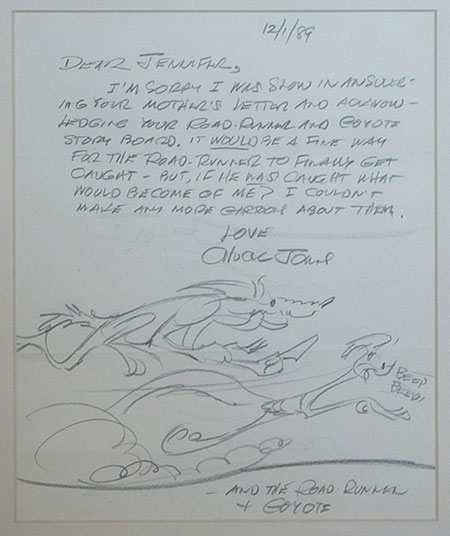 12/1/89
DEAR JENNIFER,
I'M SORRY I WAS SLOW IN ANSWER-
ING YOUR MOTHER'S LETTER AND ACKNOW-
LEDGING YOUR ROAD-RUNNER AND COYOTE
STORY BOARD. IT WOULD BE A FINE WAY
FOR THE ROAD-RUNNER TO FINALLY GET
CAUGHT - BUT, IF HE WAS CAUGHT WHAT
WOULD BECOME OF ME? I COULDN'T
MAKE ANY MORE CARTOONS ABOUT THEM.
LOVE
Chuck Jones
BEEP
BEEP!
- AND THE ROAD-RUNNER
+ COYOTE